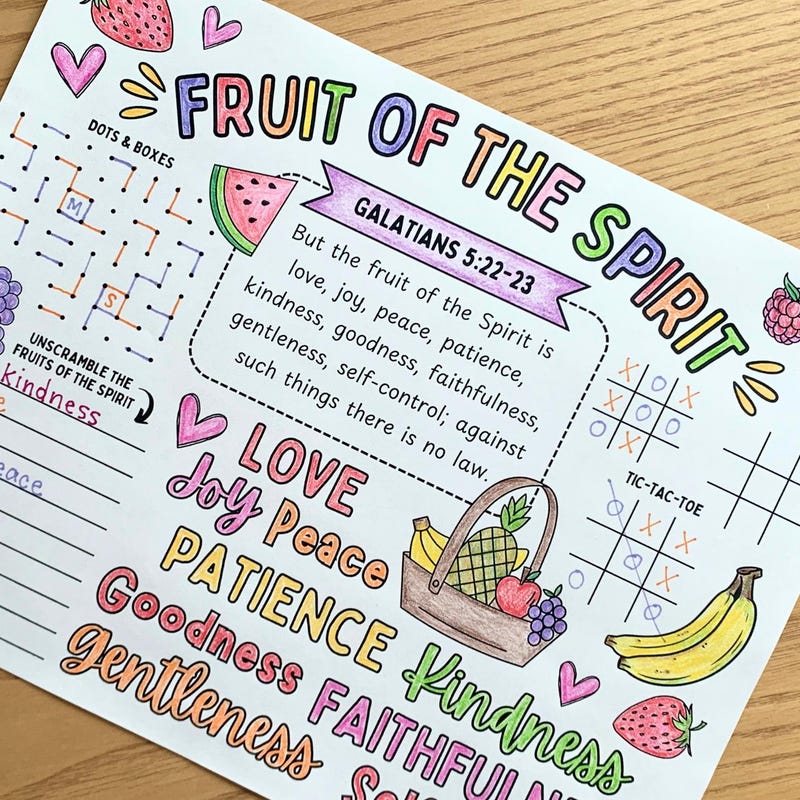 FRUIT OF THE SPIRIT
DOTS & BOXES
M
S
GALATIANS 5:22-23
But the fruit of the Spirit is
love, joy, peace, patience,
kindness, goodness, faithfulness,
gentleness, self-control; against
such things there is no law.
UNSCRAMBLE THE
FRUITS OF THE SPIRIT
kindness
eace
X O X
X O O
O X
TIC-TAC-TOE
O X X
O X
O O
LOVE
Joy Peace
PATIENCE
Goodness Kindness
gentleness FAITHFULN
Sel